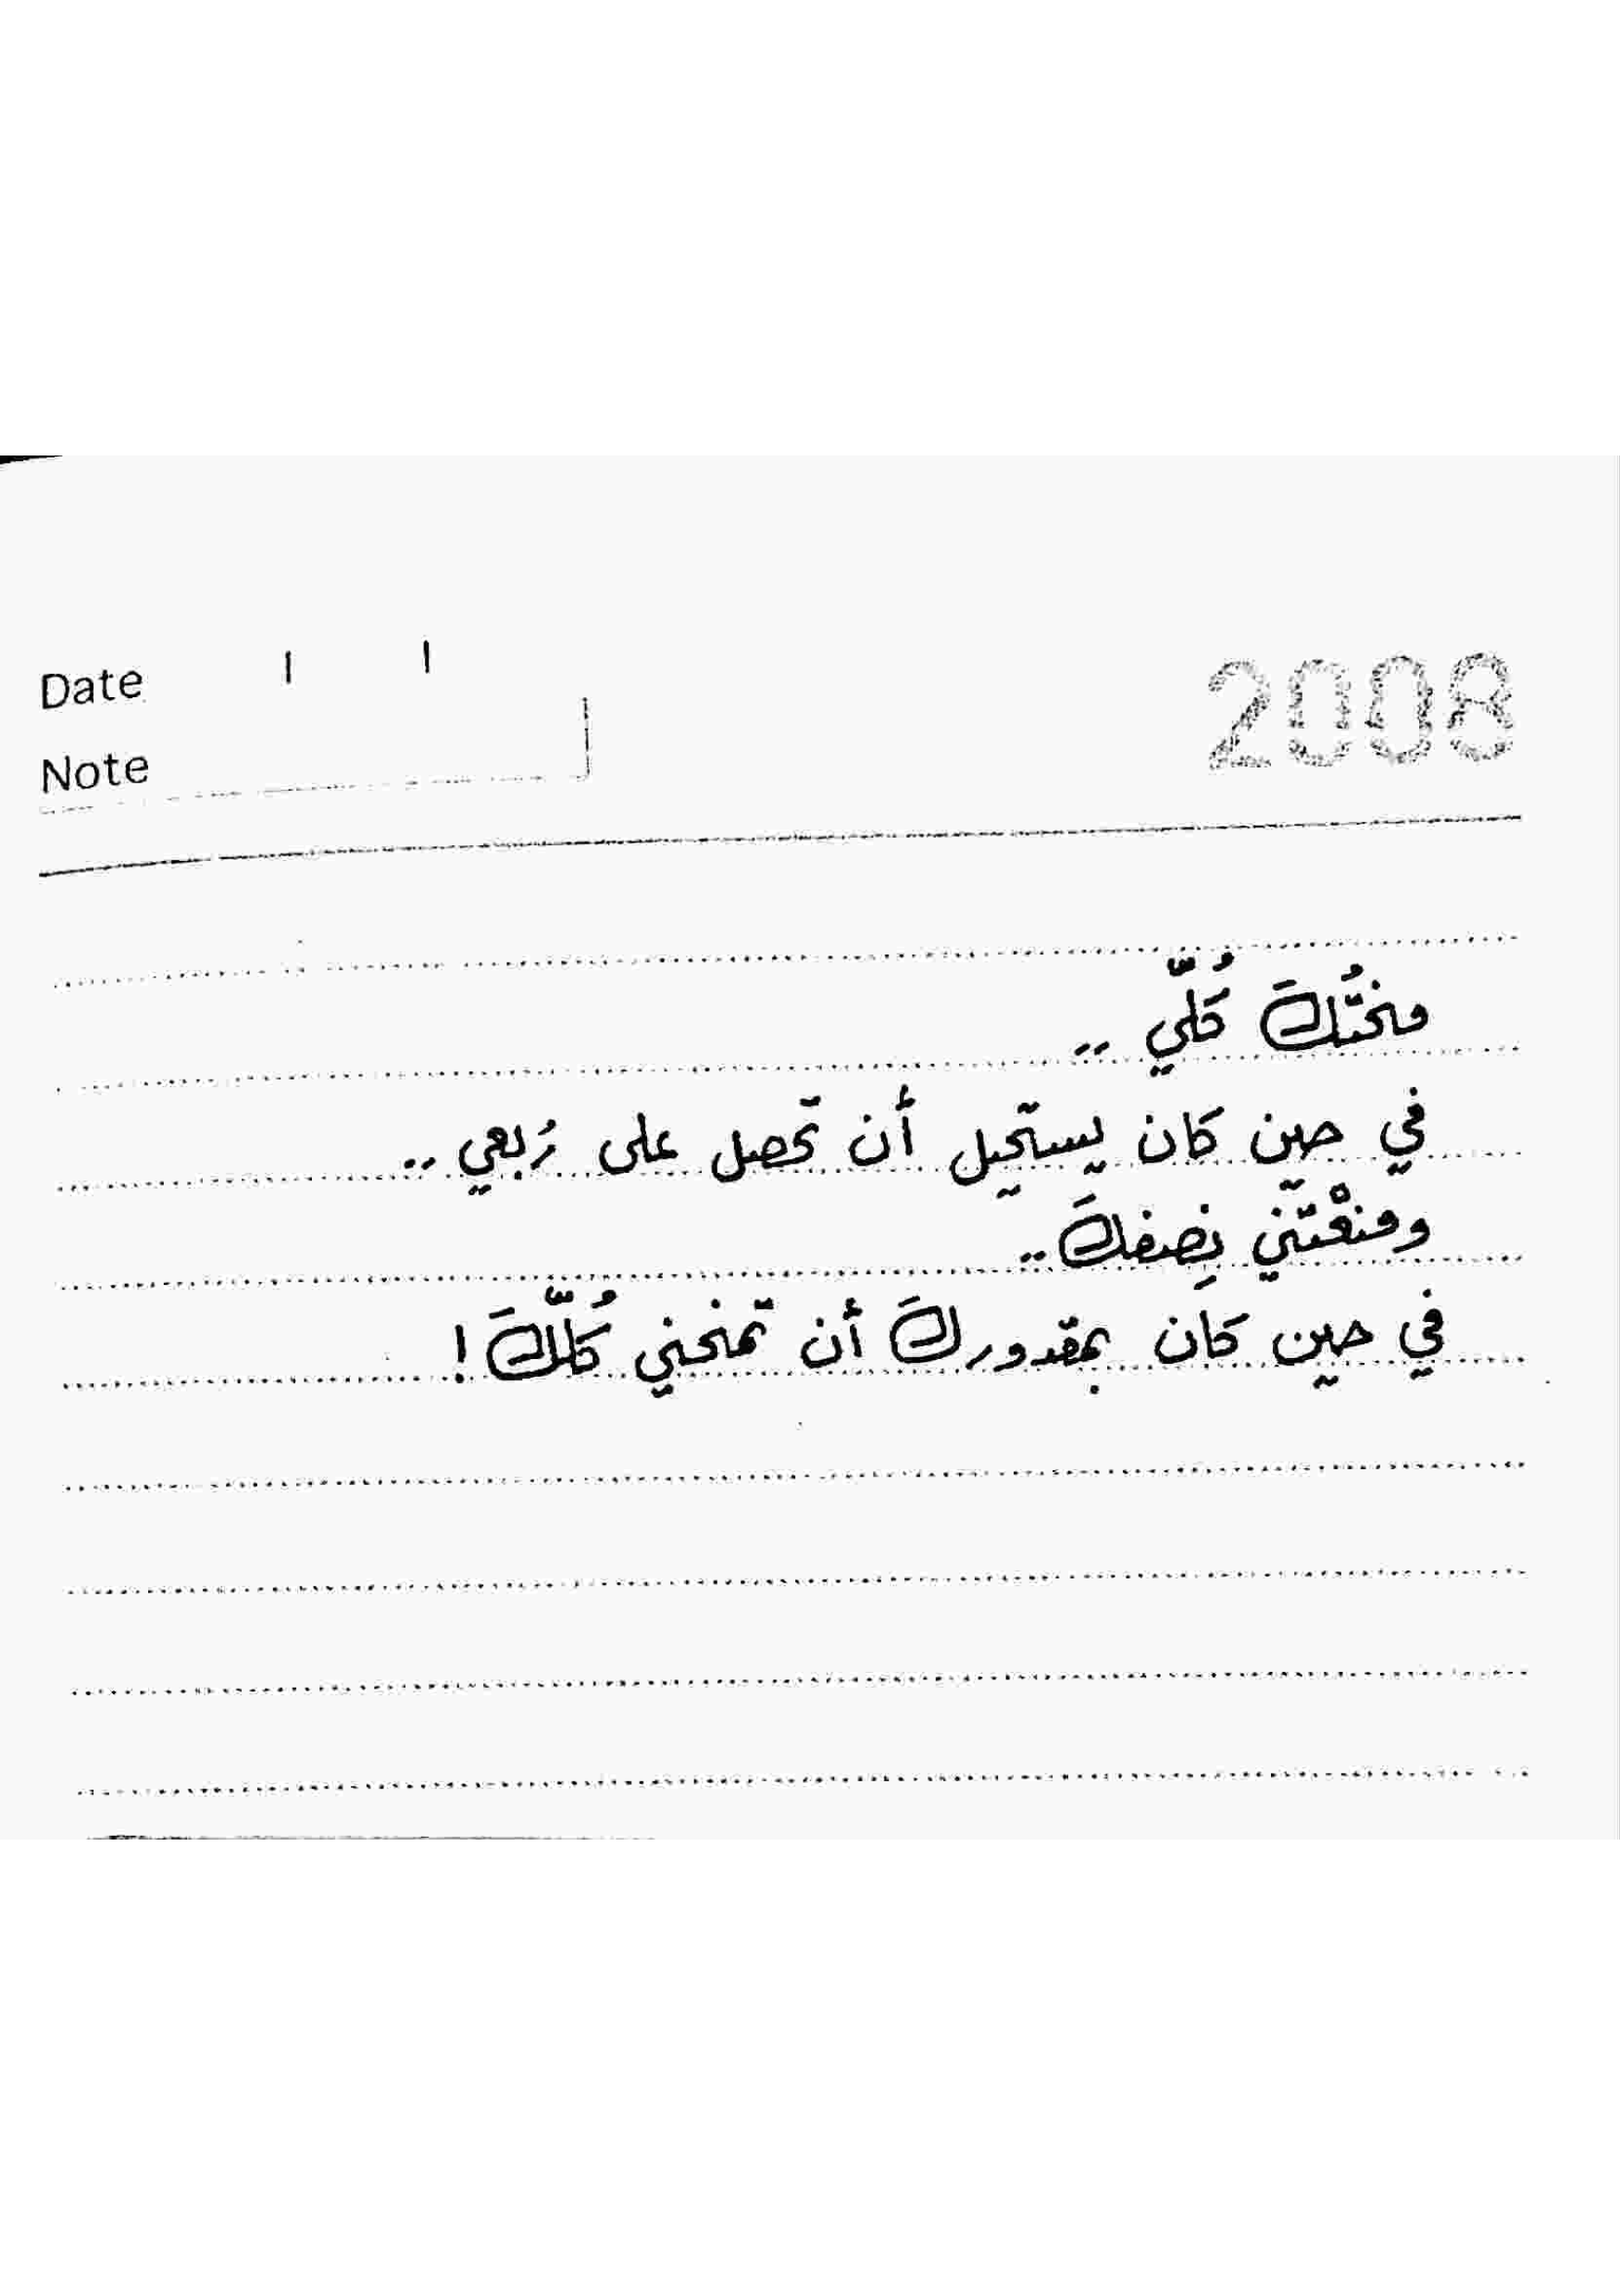 Date / /
2008
Note
منحتُكَ كُلّي ..
في حين كان يستحيل أن تحصل على رُبعي ..
ومنعْتني نِصفكَ ..
في حين كان بمقدوركَ أن تمنحني كُلّكَ !